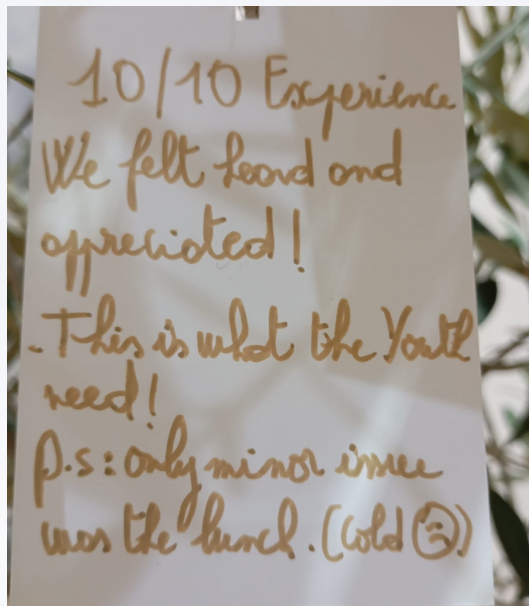 10/10 Experience
We felt heard and
appreciated!
-This is what the Youth
need!
P.s: only minor issue
was the lunch. (cold ☹)